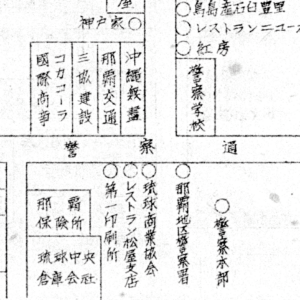 神戸家
レストランニュー
紅房
警察学校
沖縄
那覇交通
三協建設
コカコーラ
國際商事
警察通
那覇
保険所
琉球中央
倉庫会社
第一印刷所
レストラン松屋支店
琉球商業
那覇地区警察署
警察本部